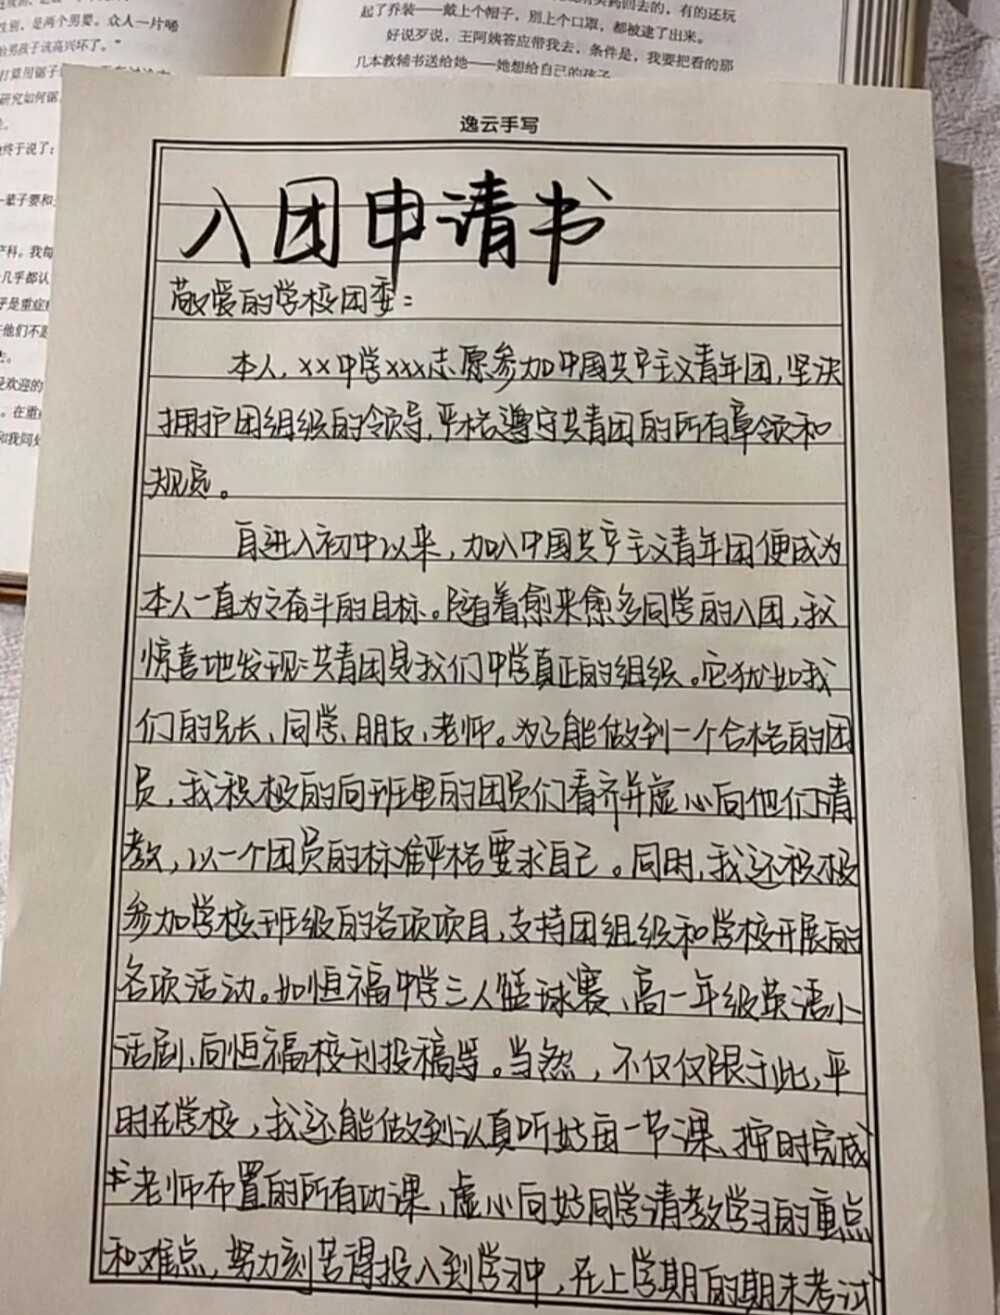 性别，是两个男婴。众人一片唏
男孩子该高兴坏了。”
打算用锯子
研究如何锯
终于说了：
一辈子要和
产科。我每
几乎都认
乎是重症
他们不是
去。
受欢迎的
。在重
和我同处
回去的，有的还玩
起了乔装——戴上个帽子，别上个口罩，都被逮了出来。
好说歹说，王阿姨答应带我去，条件是，我要把看的那
几本教辅书送给她——她想给自己的孩子
逸云手写
入团申请书
敬爱的学校团委：
本人，××中学×××志愿参加中国共产主义青年团，坚决
拥护团组织的领导，严格遵守共青团的所有章领和
规定。
自进入初中以来，加入中国共产主义青年团便成为
本人一直为之奋斗的目标。随着愈来愈多同学的入团，我
惊喜地发现：共青团是我们中学真正的组织。它犹如我
们的兄长、同学、朋友、老师。为了能做到一个合格的团
员，我积极的向班里的团员们看齐并虚心向他们请
教，以一个团员的标准严格要求自己。同时，我还积极
参加学校班级的各项项目，支持团组织和学校开展的
各项活动。如恒福中学三人篮球赛、高一年级英语小
话剧、向恒福校刊投稿等。当然，不仅仅限于此，平
时在学校，我还能做到认真听好每一节课、按时完成
老师布置的所有功课，虚心向好同学请教学习的重点
和难点，努力刻苦得投入到学习中，在上学期的期末考试